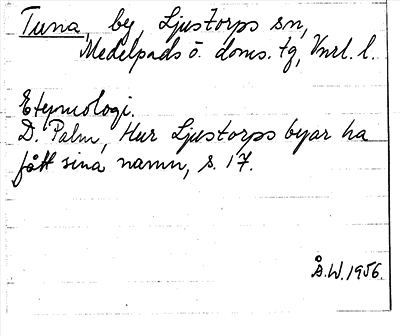 Tuna, by, Ljustorps sn,
Medelpads ö. doms. tg, Vnrl. l.
Etymologi.
D. Palm, Hur Ljustorps byar ha
fått sina namn, s. 17.
Å.W. 1956.